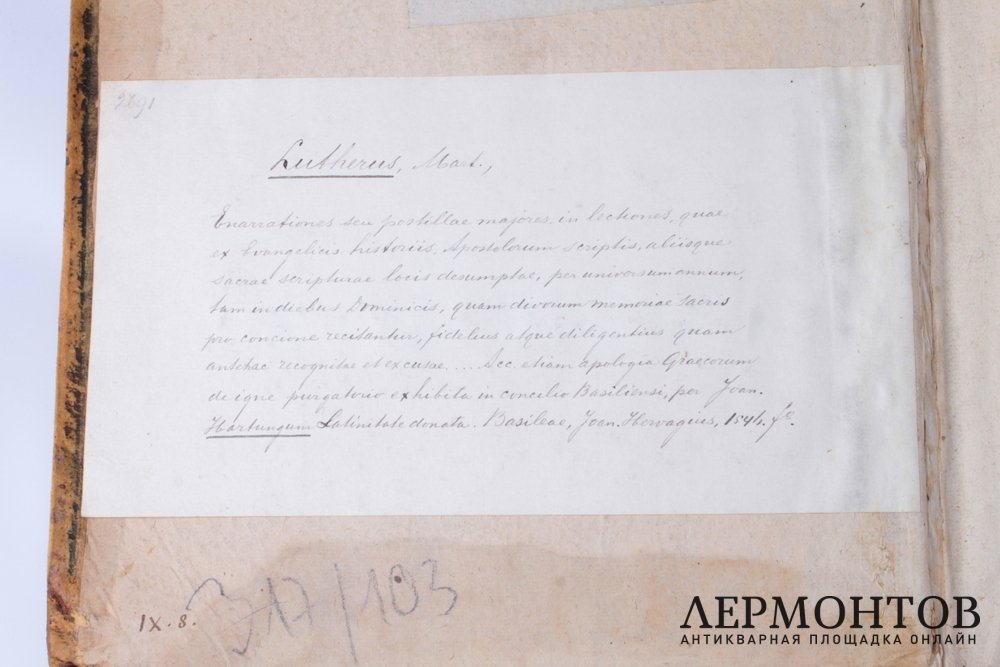 2691
Lutherus, Mart.,
Enarrationes seu postillae majores, in lectiones, quae
ex Evangelicis historiis, Apostolorum scriptis, aliisque
sacrae scripturae locis desumptae, per universum annum,
tam in diebus Dominicis, quam divorum memoriae sacris
pro concione recitantur, fidelius atque diligentius quam
antehac recognitae et excusae. ... Acc. etiam apologia Graecorum
de igne purgatorio exhibita in concilio Basiliensi, per Joan.
Hartungum Latinitate donata. Basileae, Joan. Hervagius, 154 f°.
IX. 8.
317/103
ЛЕРМОНТОВ
АНТИКВАРНАЯ ПЛОЩАДКА ОНЛАЙН